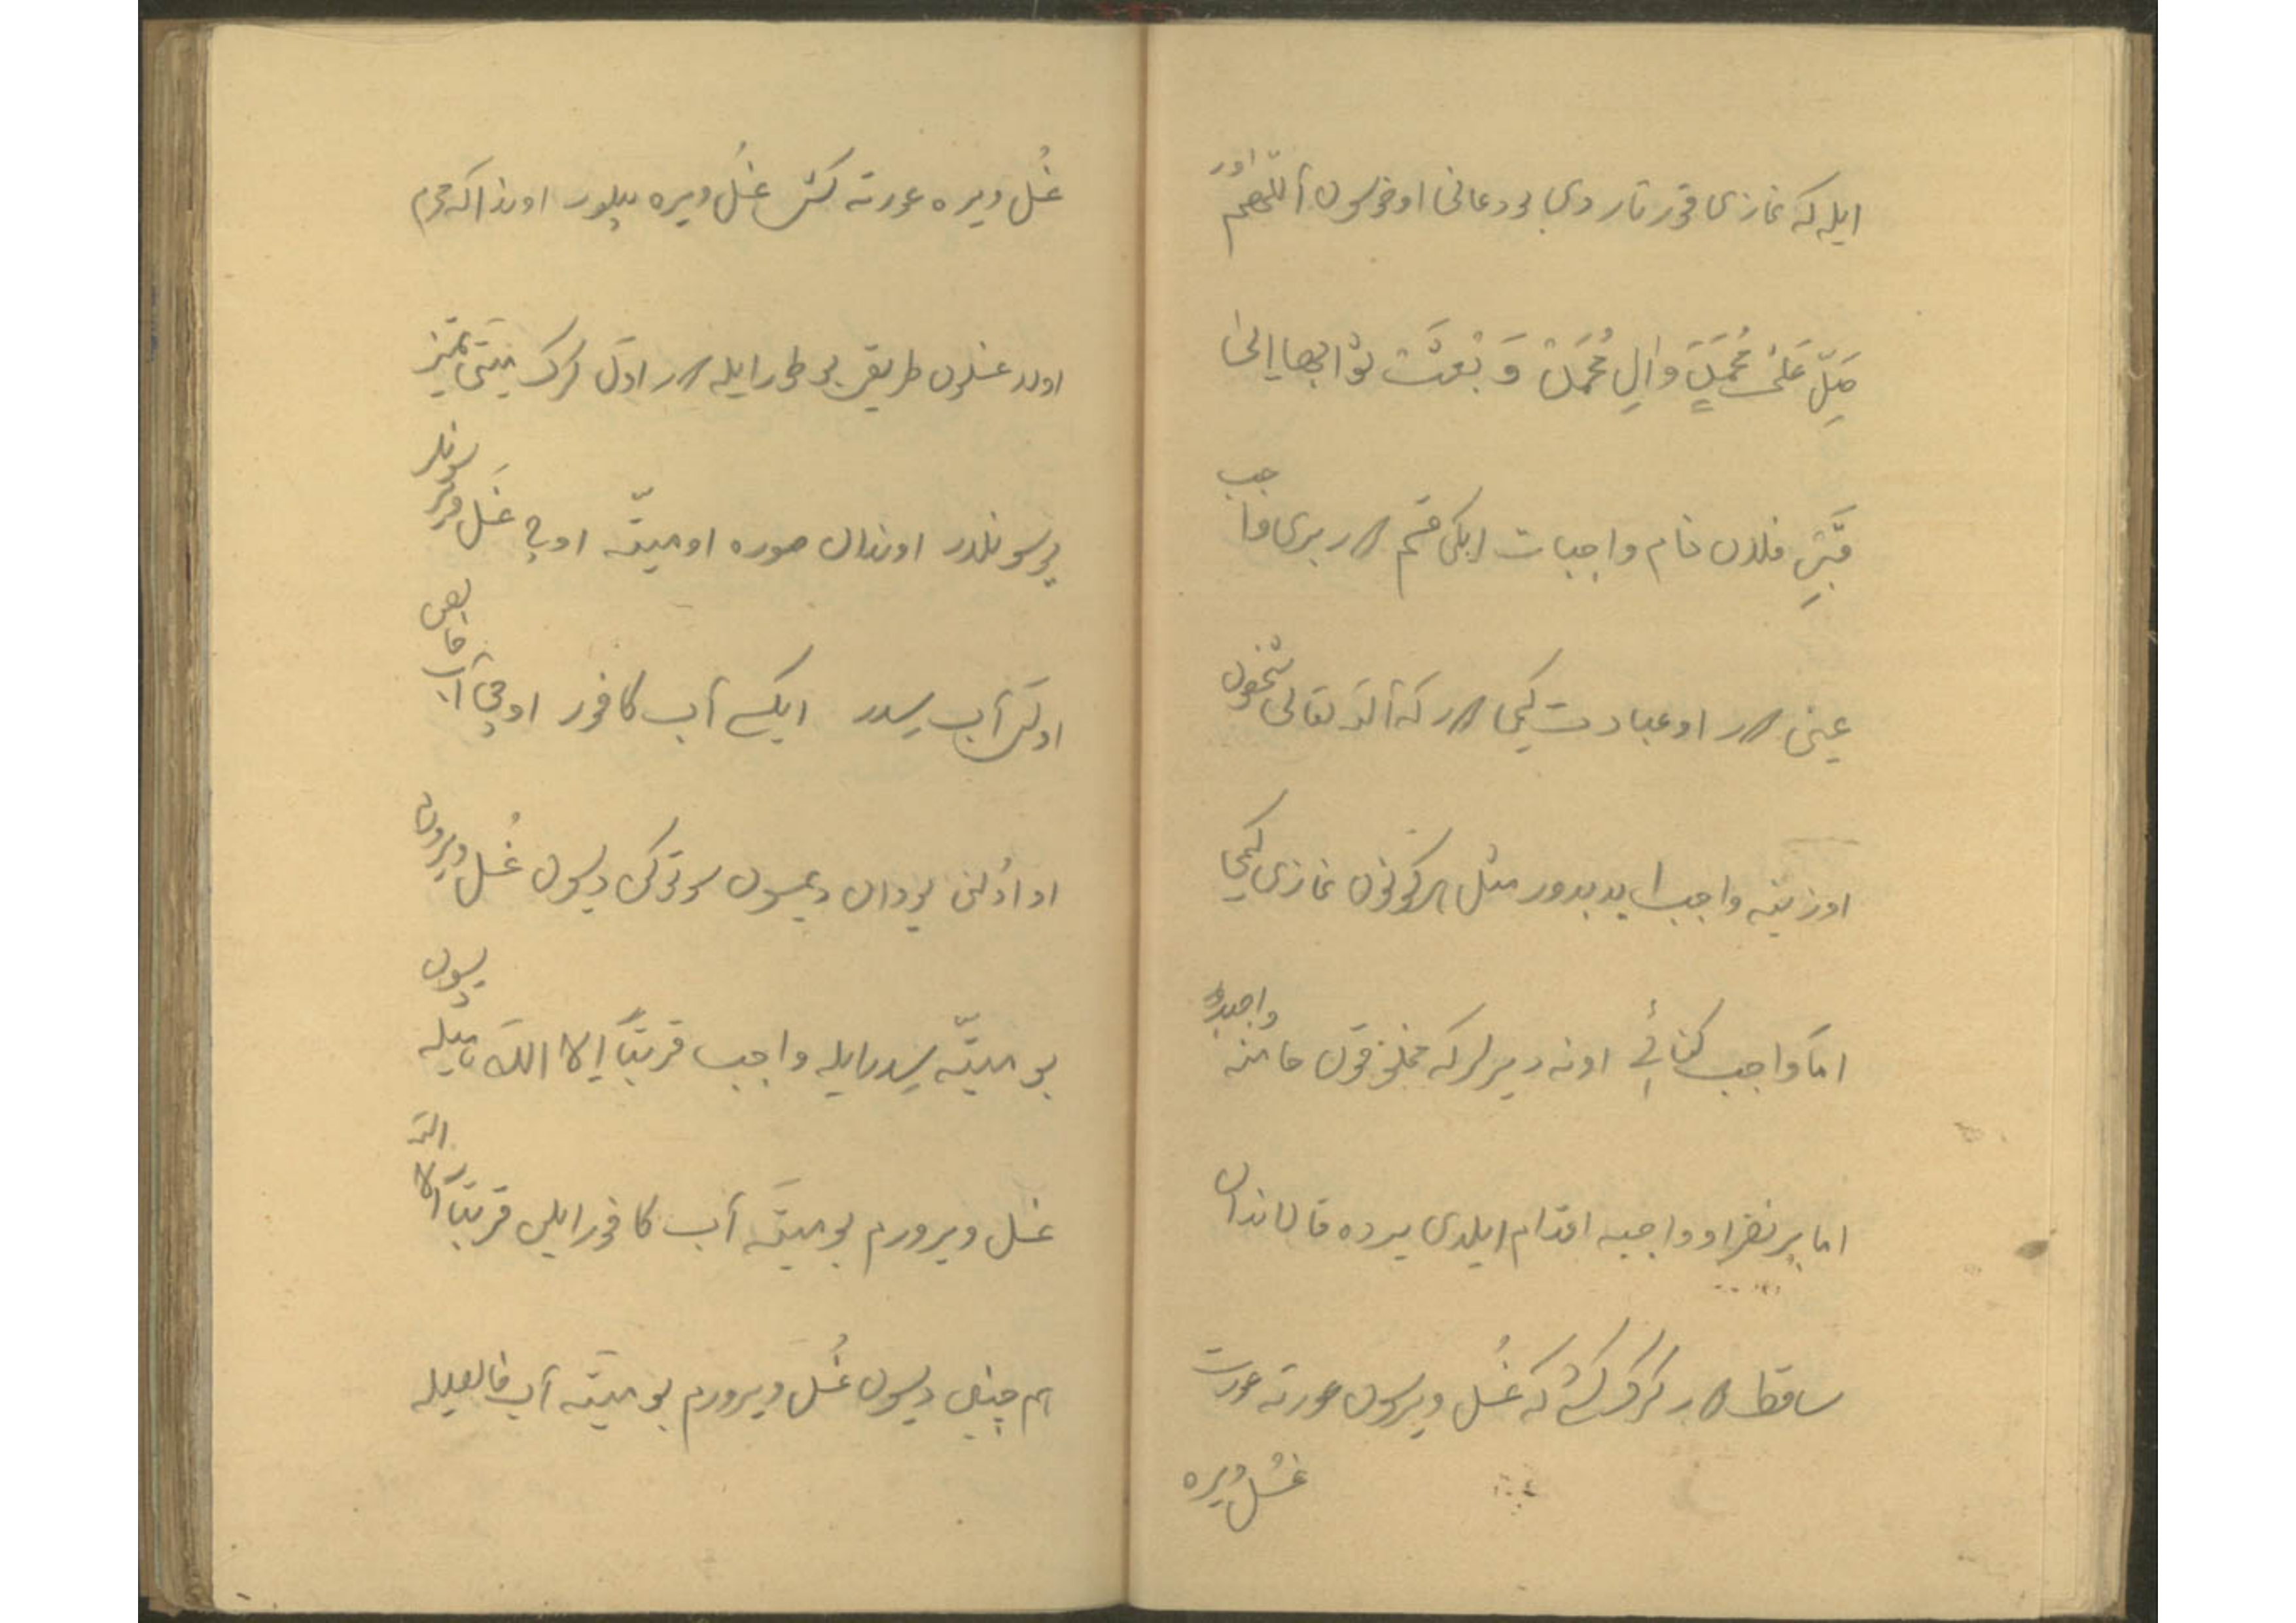 ایله که نمازی قورتاردی بو دعانی اوخوسون اَللّهُمَ
صَلِّ عَلىٰ مُحَمَدٍ وَالِ مُحَمَدْ وَ بْعَثْ ثوْابهاٰ اِلىٰ
قَبْرِ فلان تمام واجبات ایکی قسم در بری واجب
عینی در او عبادت کیمی در که الله تعالی شخصون
اوزینه واجب ایدیدور مثل هرکونون نمازی کیمی
اما واجب کفائی اونه دیرلر که مخلوقون هامنه واجبدور
اما بیر نفر او واجبه اقدام ایلدی یرده قالاندان
ساقط در کرک کشی که غُسل ویرسون عورته عورت
غسل ویره
غُسل ویره عورته کشی غسل ویره بیلور اوندا که محرم
اولا غسلون طریقی بو طور ایله در اوّل کرک میّتی تمیز
یوسونلار اوندان صوره او میّته اوچ غسل ویرسونلر
اوّلی آب سدر ایکی آب کافور اوچی آب خالص
او اوّلنی یودان دیمسون سوتوکی دیسون غُسل ویرورم
بو میّته سدرایله واجب قربتاً اِلا الله بیله دیسون
غسل ویرورم بو میّته آب کافور ایلی قربتاً الا الله
هم چنین دیسون غُسل ویرورم بو میّته آب خالصیله